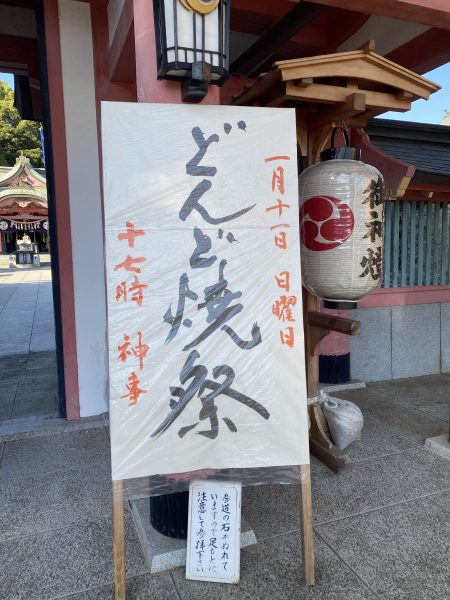 一月十一日 日曜日
どんど焼祭
十七時 神事
御神燈
参道の石がぬれて
いますので足もとに
注意して参拝下さい